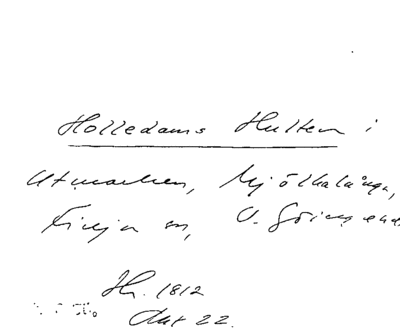 Holledams Hulten i
Utmarken, Mjölkalånga,
Finja sn, V. Göinge hd
Hr. 1812
Akt 22.